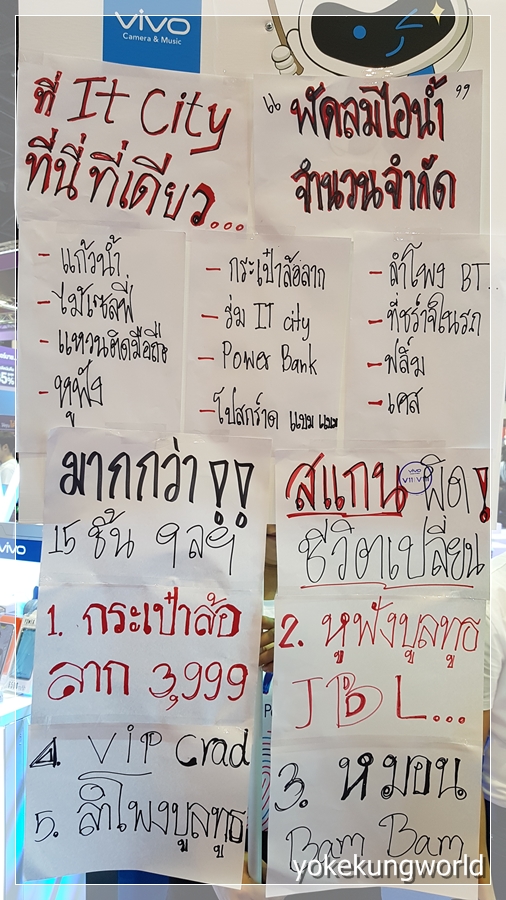 vivo
Camera & Music
ที่ It City
ที่นี่ที่เดียว...
"พัดลมไอน้ำ"
จำนวนจำกัด
- แก้วน้ำ
- ไม้เซลฟี่
- แหวนติดมือถือ
- หูฟัง
- กระเป๋าล้อลาก
- ร่ม IT city
- Power Bank
- โปสการ์ด แบม แบม
- ลำโพง BT..
- ที่ชาร์จในรถ
- ฟิล์ม
- เคส
มากกว่า !!
15 ชิ้น ฯลฯ
สแกน ผิด!
vivo
V11:V11i
ชีวิตเปลี่ยน
1. กระเป๋าล้อ
ลาก 3,999
2. หูฟังบูลทูธ
JBL...
4. ViP Crad
5. ลำโพงบูลทูธ
3. หมอน
Bam Bam
vivo
yokekungworld